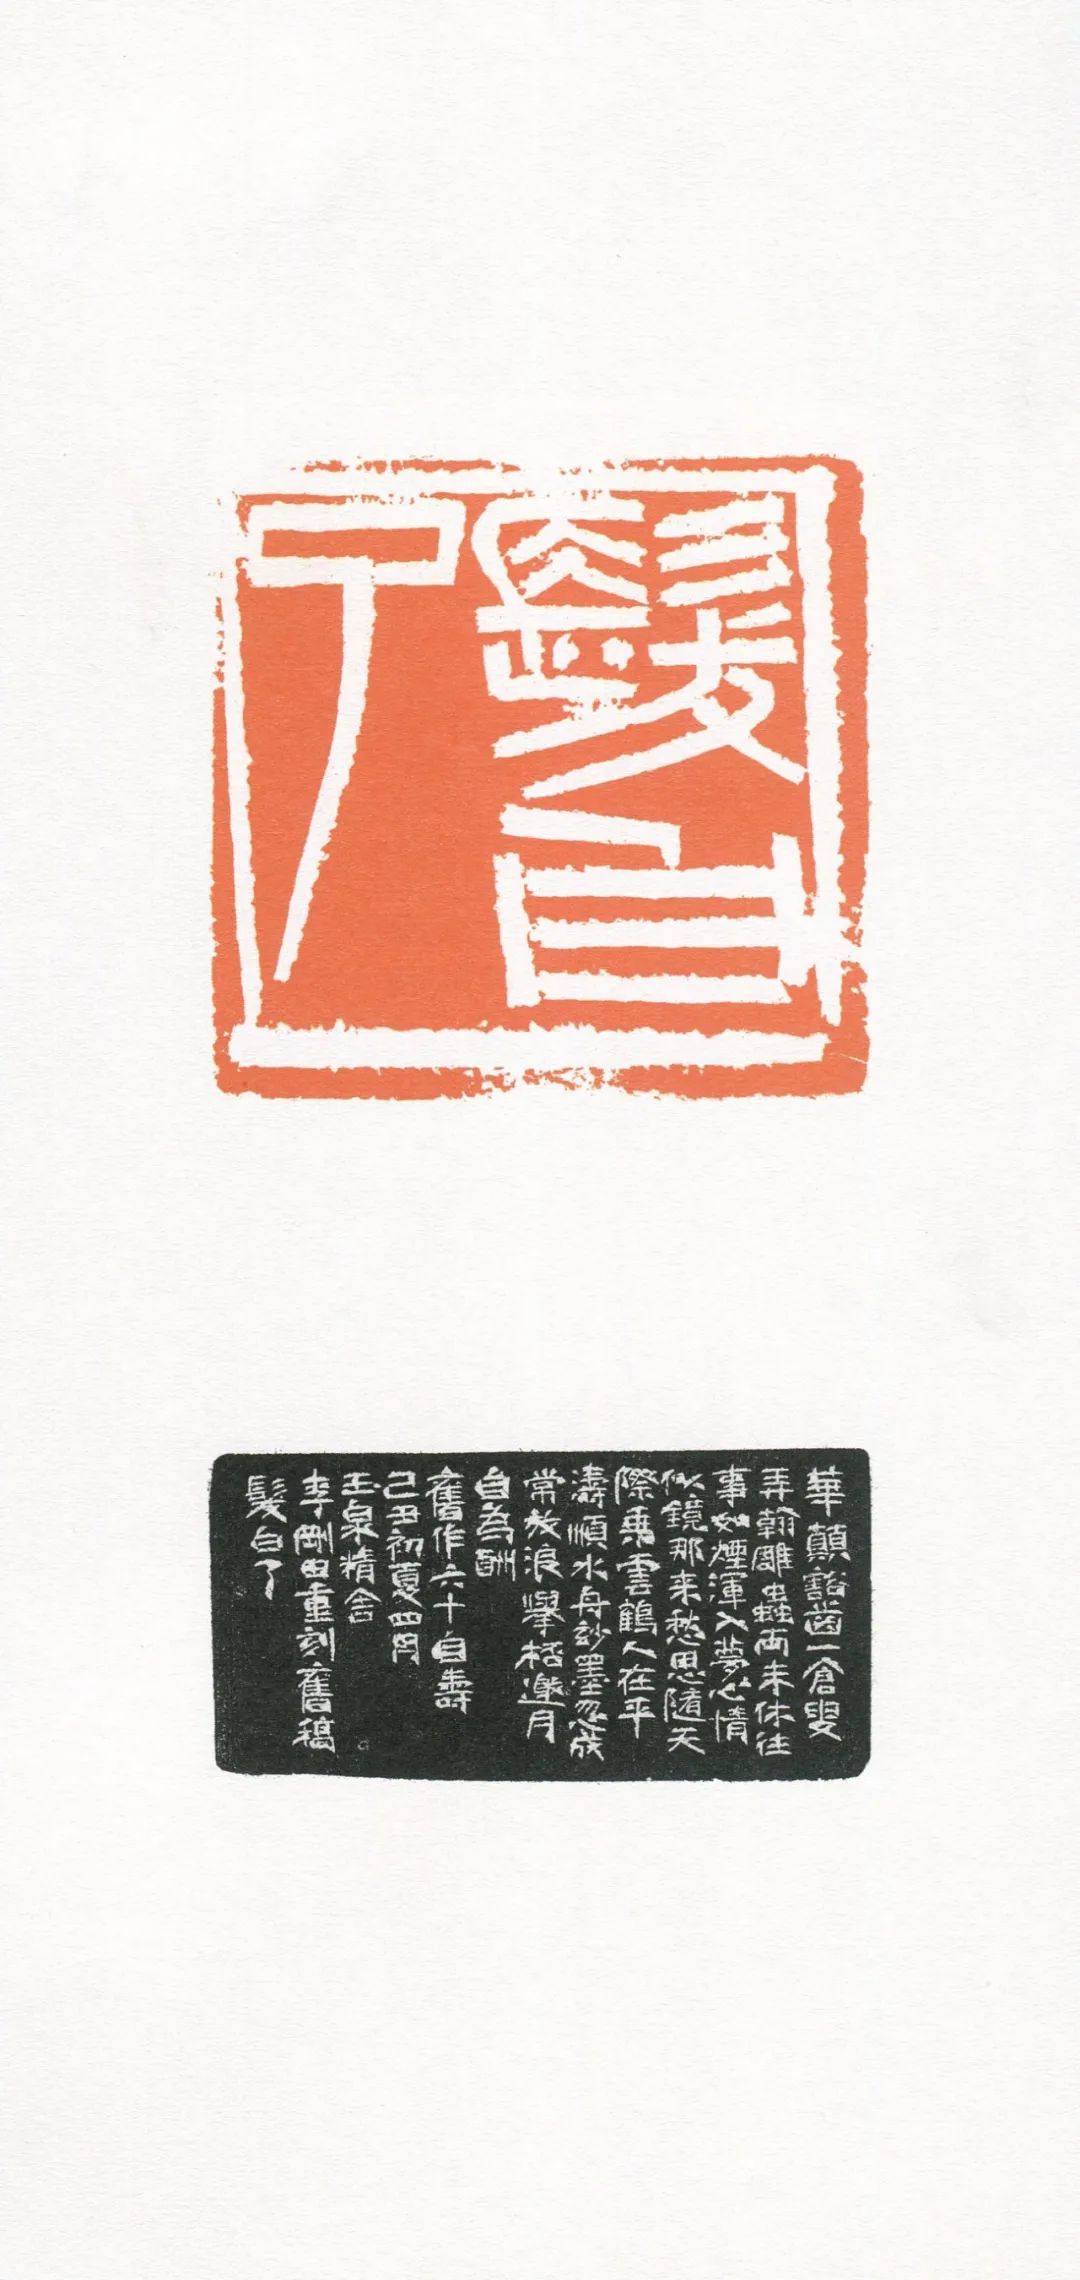 髮白
了
華顛豁齒一倉叟
弄翰雕蟲両未休往
事如煙渾入夢心情
似鏡那来愁思隨天
際乘雲鶴人在平
濤順水舟玅墨忽成
常放浪舉桮邀月
自為酬
舊作六十自壽
己丑初夏四月
玉泉精舍
李剛田重刻舊稿
髮白了